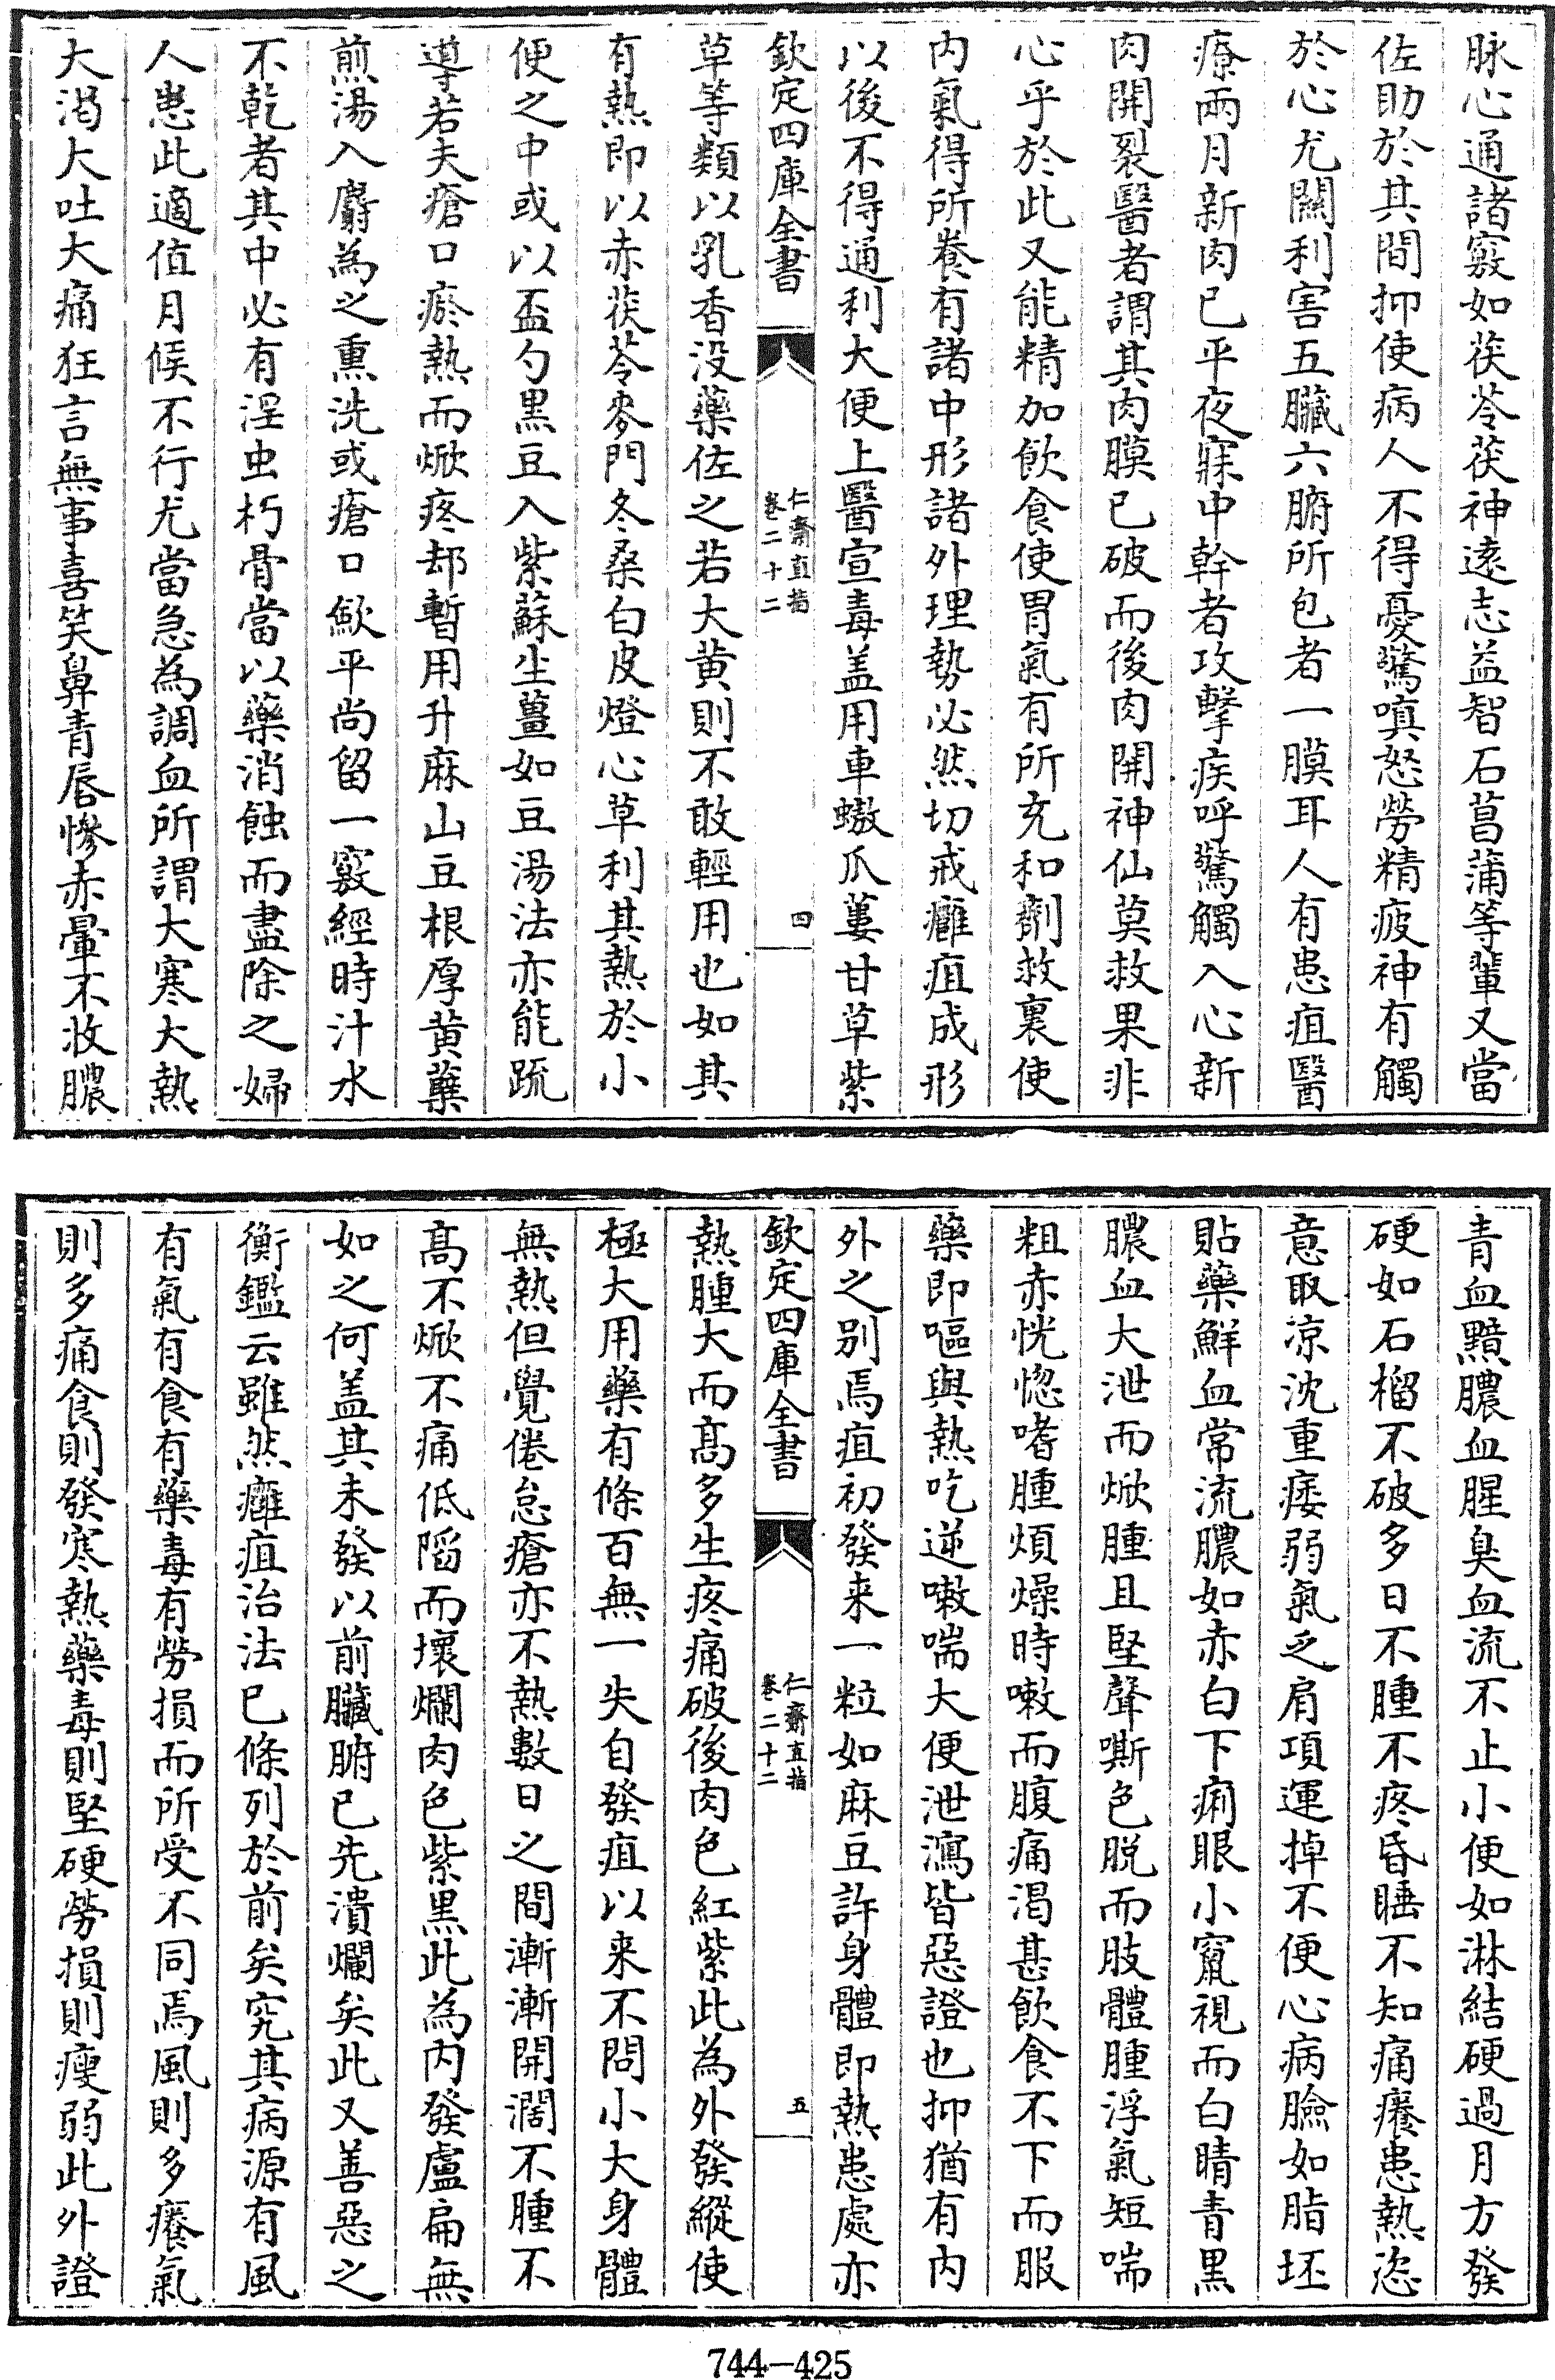 脉心通諸竅如茯苓茯神遠志益智石菖蒲等輩又當
佐助於其間抑使病人不得憂驚嗔怒勞精疲神有觸
於心尤關利害五臟六腑所包者一膜耳人有患疽醫
療兩月新肉已平夜寐中幹者攻擊疾呼驚觸入心新
肉開裂醫者謂其肉膜已破而後肉開神仙莫救果非
心乎於此又能精加飲食使胃氣有所充和劑救裏使
内氣得所養有諸中形諸外理勢必然切戒癰疽成形
以後不得通利大便上醫宣毒盖用車螯爪蔞甘草紫
欽定四庫全書
仁齋直指
卷二十二
四
草等類以乳香没藥佐之若大黄則不敢輕用也如其
有熱即以赤茯苓麥門冬桑白皮燈心草利其熱於小
便之中或以盃勺黒豆入紫蘇生薑如豆湯法亦能疏
導若夫瘡口瘀熱而焮疼却暫用升麻山豆根厚黄蘗
煎湯入麝為之熏洗或瘡口歛平尚留一竅經時汁水
不乾者其中必有淫虫朽骨當以藥消蝕而盡除之婦
人患此適值月候不行尤當急為調血所謂大寒大熱
大渇大吐大痛狂言無事喜笑鼻青唇慘赤暈不收膿
青血黯膿血腥臭血流不止小便如淋結硬過月方發
硬如石榴不破多日不腫不疼昏睡不知痛癢患熱恣
意取凉沈重痿弱氣乏肩項運掉不便心病臉如脂坯
貼藥鮮血常流膿如赤白下痢眼小竄視而白睛青黒
膿血大泄而焮腫且堅聲嘶色脱而肢體腫浮氣短喘
粗赤恍惚嗜腫煩燥時嗽而腹痛渇甚飲食不下而服
藥即嘔與熱吃逆嗽喘大便泄瀉皆惡證也抑猶有内
外之别焉疽初發来一粒如麻豆許身體即熱患處亦
欽定四庫全書
仁齋直指
卷二十二
五
熱腫大而髙多生疼痛破後肉色紅紫此為外發縱使
極大用藥有條百無一失自發疽以来不問小大身體
無熱但覺倦怠瘡亦不熱數日之間漸漸開濶不腫不
髙不焮不痛低䧟而壞爛肉色紫黒此為内發盧扁無
如之何盖其未發以前臟腑已先潰爛矣此又善惡之
衡鑑云雖然癰疽治法已條列於前矣究其病源有風
有氣有食有藥毒有勞損而所受不同焉風則多癢氣
則多痛食則發寒熱藥毒則堅硬勞損則瘦弱此外證
744-425